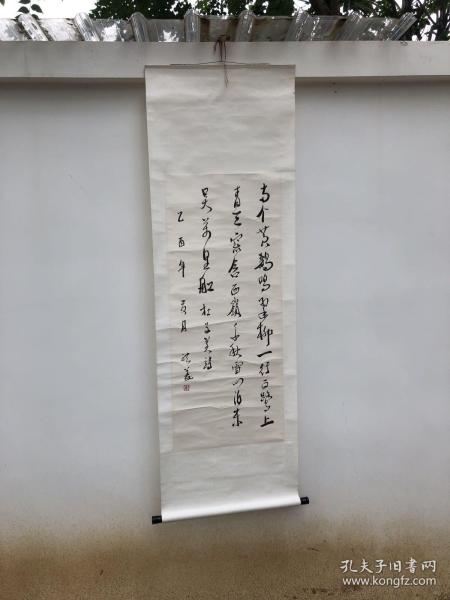 两个黄鹂鳴翠柳一行白鹭上
青天窗含西嶺千秋雪门泊东
吴萬里船杜子美诗
乙酉年夏月
孔夫子旧书网
www.kongfz.com